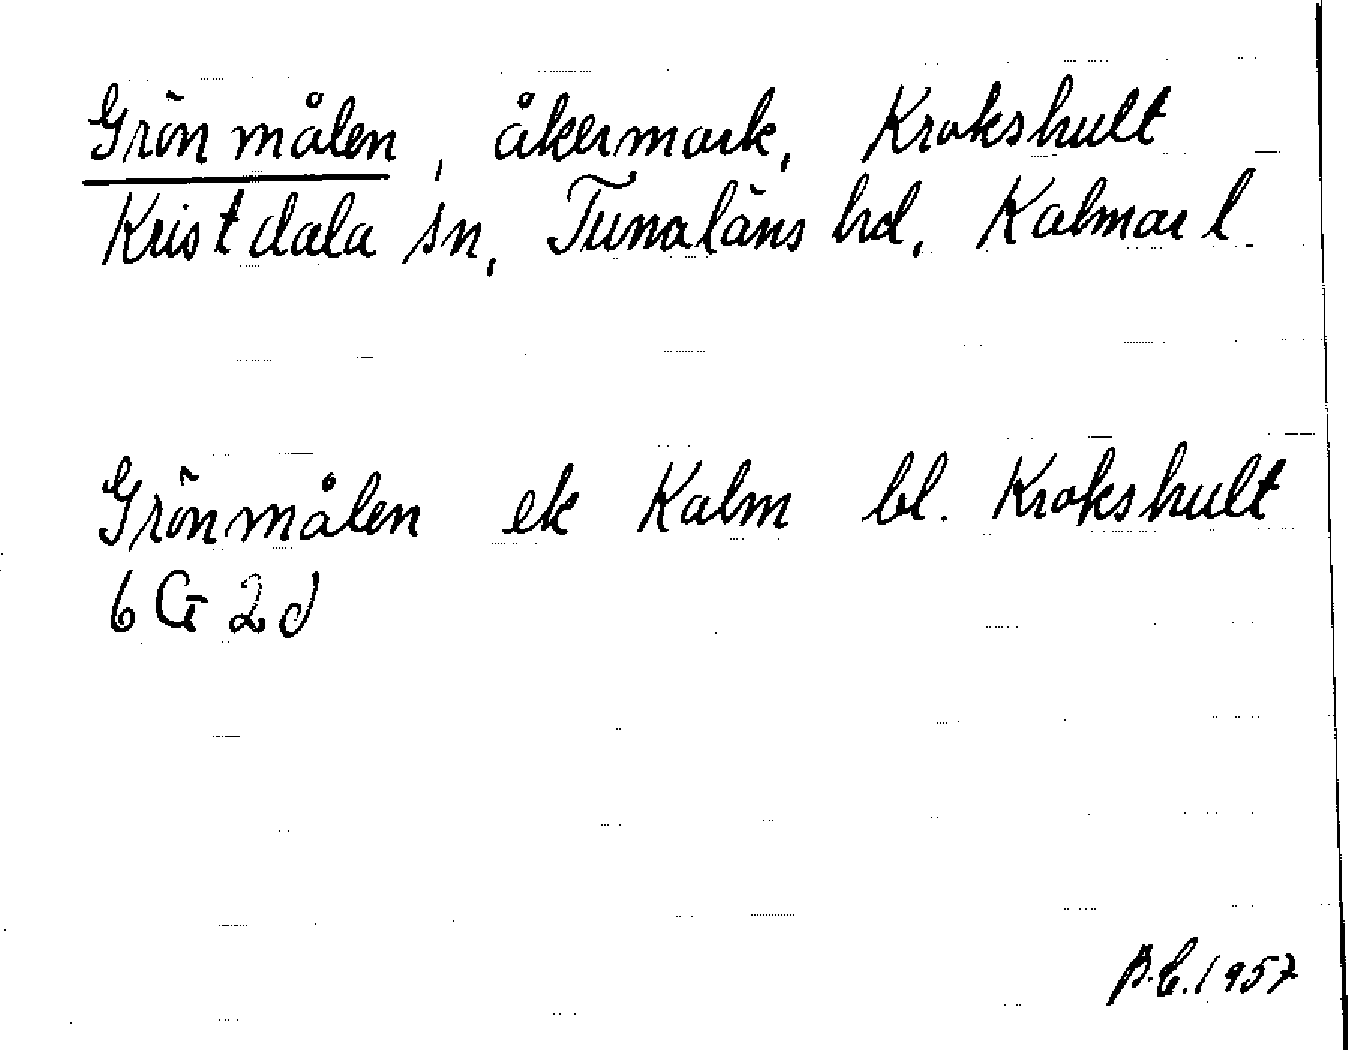 Grönmålen, åkermark, Krokshult
Kristdala sn, Tunaläns hd, Kalmar l.
Grönmålen ek Kalm bl. Krokshult
6 G 2 d
B.E. 1957